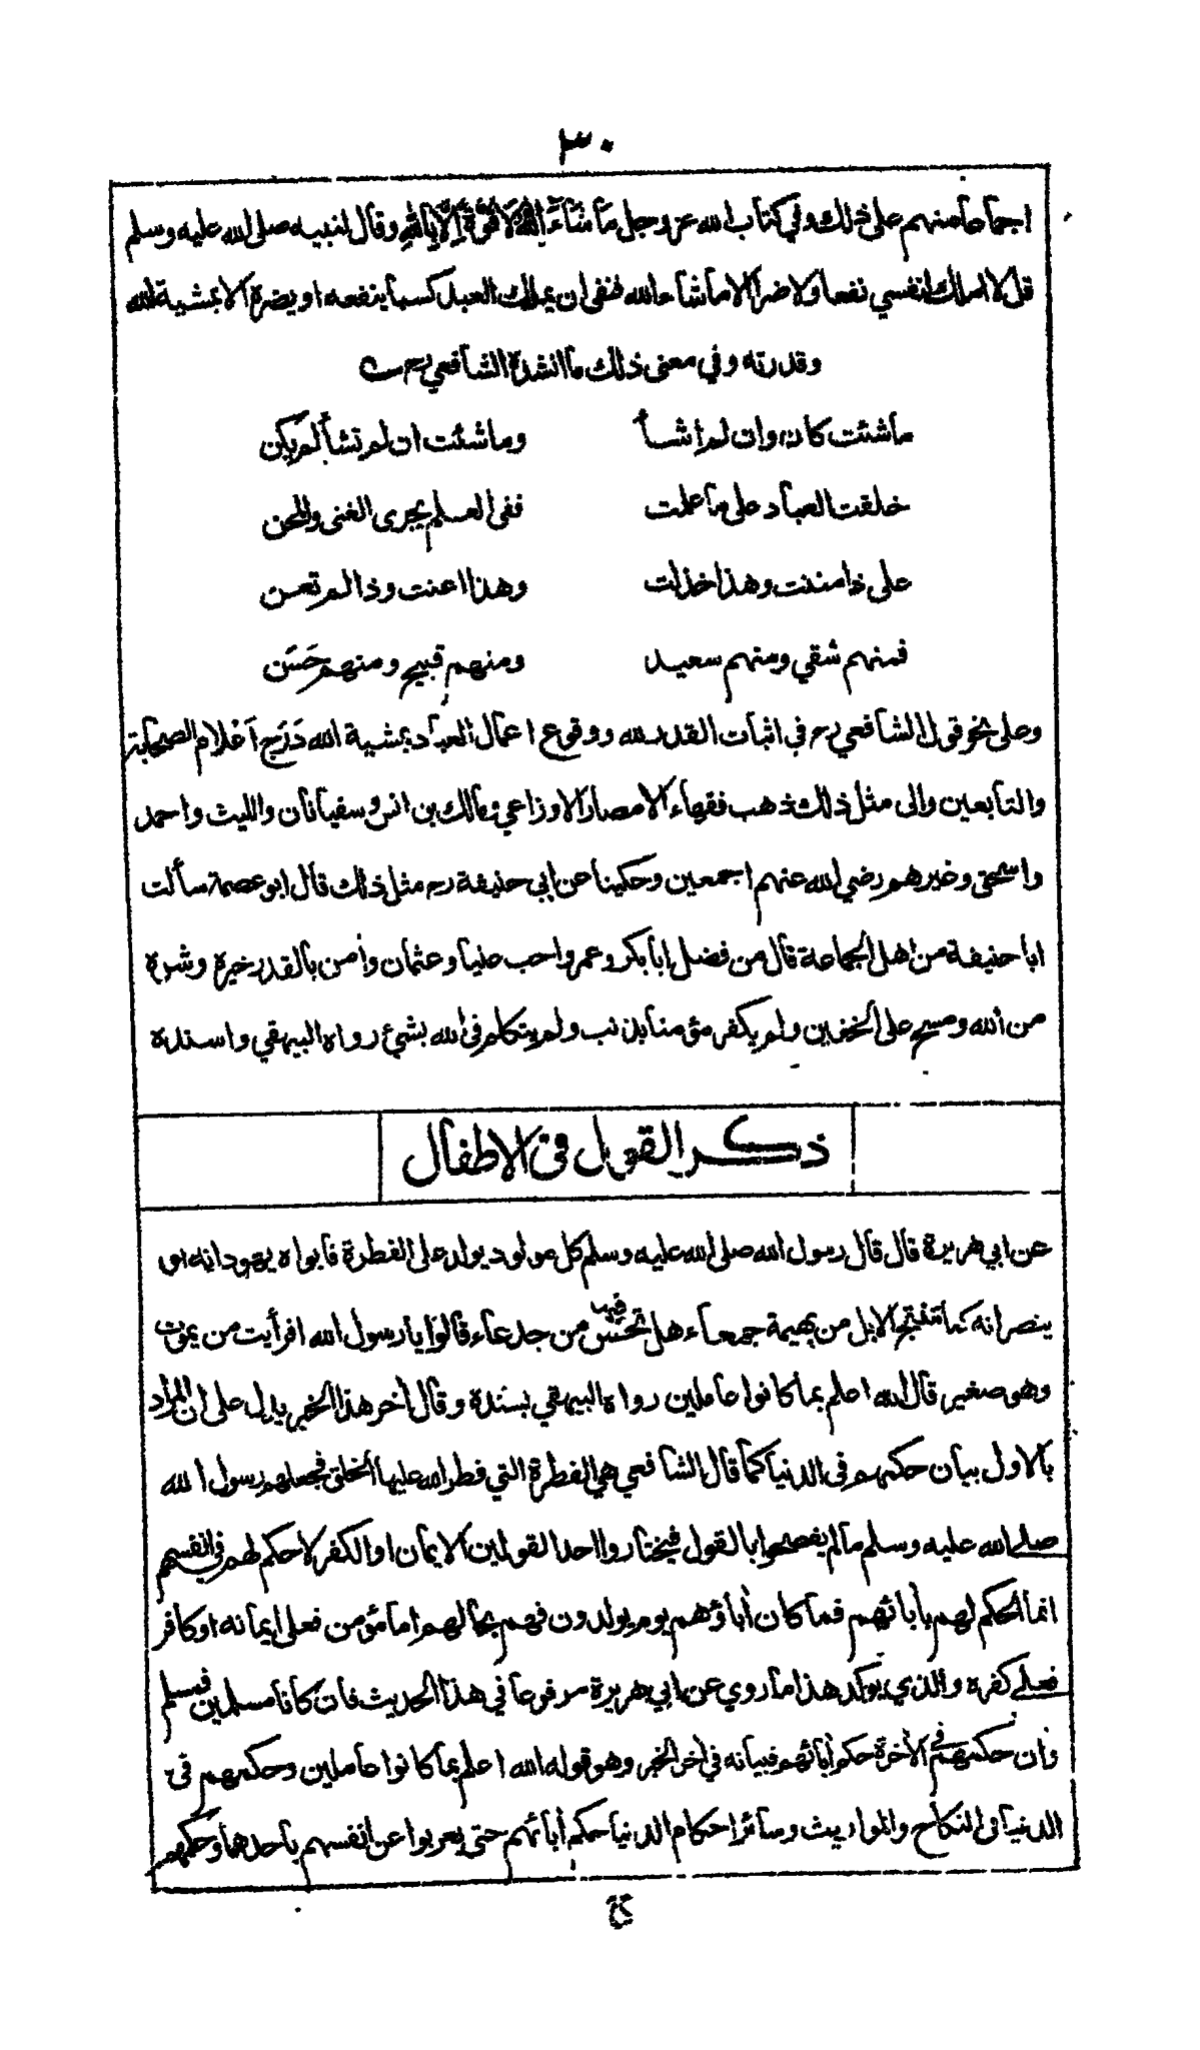 ٣٠
اجماعا منهم على ذلك وفي كتاب الله عز وجل ما شَاءَ اللهُ لَا قُوَّةَ إِلَّا بِاللهِ وقال لنبيه صلى الله عليه وسلم
قل لا املك لنفسي نفعا ولا ضرا الا ما شاء الله فنفى ان يملك العبد كسبا ينفعه او يضره الا بمشية الله
وقدرته وفي معنى ذلك ما انشده الشافعي رح
ما شئت كان وان لم اشأ وما شئت ان لم تشأ لم يكن
خلقت العباد على ما علمت ففى العلم يجرى الفتى والمحن
على ذا مننت وهذا خذلت وهذا اعنت وذا لم تعن
فمنهم شقي ومنهم سعيد ومنهم قبيح ومنهم حَسَن
وعلى نحو قول الشافعي رح في اثبات القدر لله ووقوع اعمال العباد بمشية الله دَرَج اَعْلام الصحابة
والتابعين والى مثل ذلك ذهب فقهاء الامصار الاوزاعي ومالك بن انس وسفيانان والليث واحمد
واسحق وغيرهم رضي الله عنهم اجمعين وحكينا عن ابي حنيفة رح مثل ذلك قال ابو عصمة سألت
ابا حنيفة من اهل الجماعة قال من فضل ابا بكر وعمر واحب عليا وعثمان وأمن بالقدر خيره وشره
من الله ومسح على الخفين ولم يكفر مؤمنا بذنب ولم يتكلم فى الله بشئ رواه البيهقي واسنده
ذكر القول في الاطفال
عن ابي هريرة قال قال رسول الله صلى الله عليه وسلم كل مولود يولد على الفطرة فابواه يهودانه او
ينصرانه كما تنتج الابل من بهيمة جمعاء هل تحس فيها من جدعاء قالوا يا رسول الله افرأيت من يموت
وهو صغير قال الله اعلم بما كانوا عاملين رواه البيهقي بسنده وقال أخر هذا الخبر يدل على ان المراد
بالاول بيان حكمهم فى الدنيا كما قال الشافعي هي الفطرة التي فطر الله عليها الخلق فجعلهم رسول الله
صلى الله عليه وسلم مالم يفصحوا بالقول فيختاروا احد القولين الايمان او الكفر لا حكم لهم في انفسهم
انما الحكم لهم بأبائهم فما كان أباؤهم يوم يولدون فهم بحالهم اما مؤمن فعلى ايمانه او كافر
فعلى كفره والذي يوكد هذا ما روي عن ابي هريرة مرفوعا في هذا الحديث فان كانا مسلمين فمسلم
وان حكمهم في الأخرة حكم أبائهم فبيانه في أخر الخبر وهو قوله الله اعلم بما كانوا عاملين وحكمهم في
الدنيا فى النكاح والمواريث وسائر احكام الدنيا حكم أبائهم حتى يعربوا عن انفسهم باحدهما وحكمهم